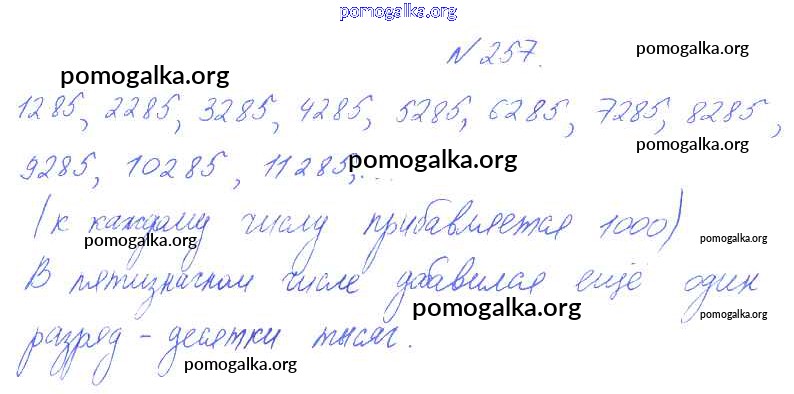 pomogalka.org
N 257.
pomogalka.org
pomogalka.org
1285, 2285, 3285, 4285, 5285, 6285, 7285, 8285,
9285, 10285, 11285, ...
pomogalka.org
(к каждому числу прибавляется 1000)
pomogalka.org
pomogalka.org
В пятизначном числе добавился ещё один
pomogalka.org
pomogalka.org
разряд - десятки тысяч.
pomogalka.org